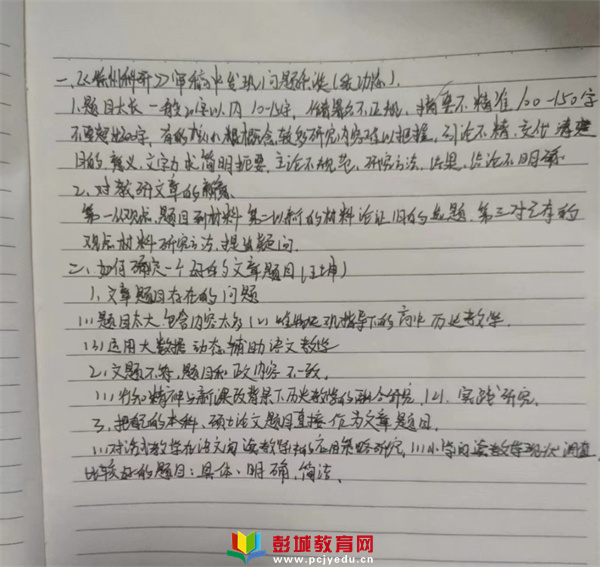 一、《徐州科研》审稿中发现问题
1. 题目太长 一般20字以内 10-15字, 摘要不精准 100-150字
不要超出 字, 有的 概念 较多研究内容难以把握, 引论不精, 交代
目的、意义、文字力求简明扼要, 立论不规范, 研究方法、结果、结论不明确
2. 对教研文章的
第一从观点、题目到材料 第二以新的材料论证旧的 题, 第三对已有的
观点 材料 研究方法, 提出疑问.
二、如何确定一个好的文章题目
1. 文章题目存在的问题
(1) 题目太大 包含内容太多 (2) 唯物史观指导下的高中历史教学.
(3) 运用大数据 动态 辅助语文教学
2. 文题不符, 题目和 内容不一致.
(1) 精神与新课改背景下历史教学的 研究, (2) 实践研究.
3. 把 的本科、硕士论文题目直接作为文章题目.
(1) 对话式教学在语文阅读教学中的应用策略研究, (2) 小学阅读教学现状调查
比较好的题目: 具体、明确、简洁.
彭城教育网
www.pcjyedu.cn